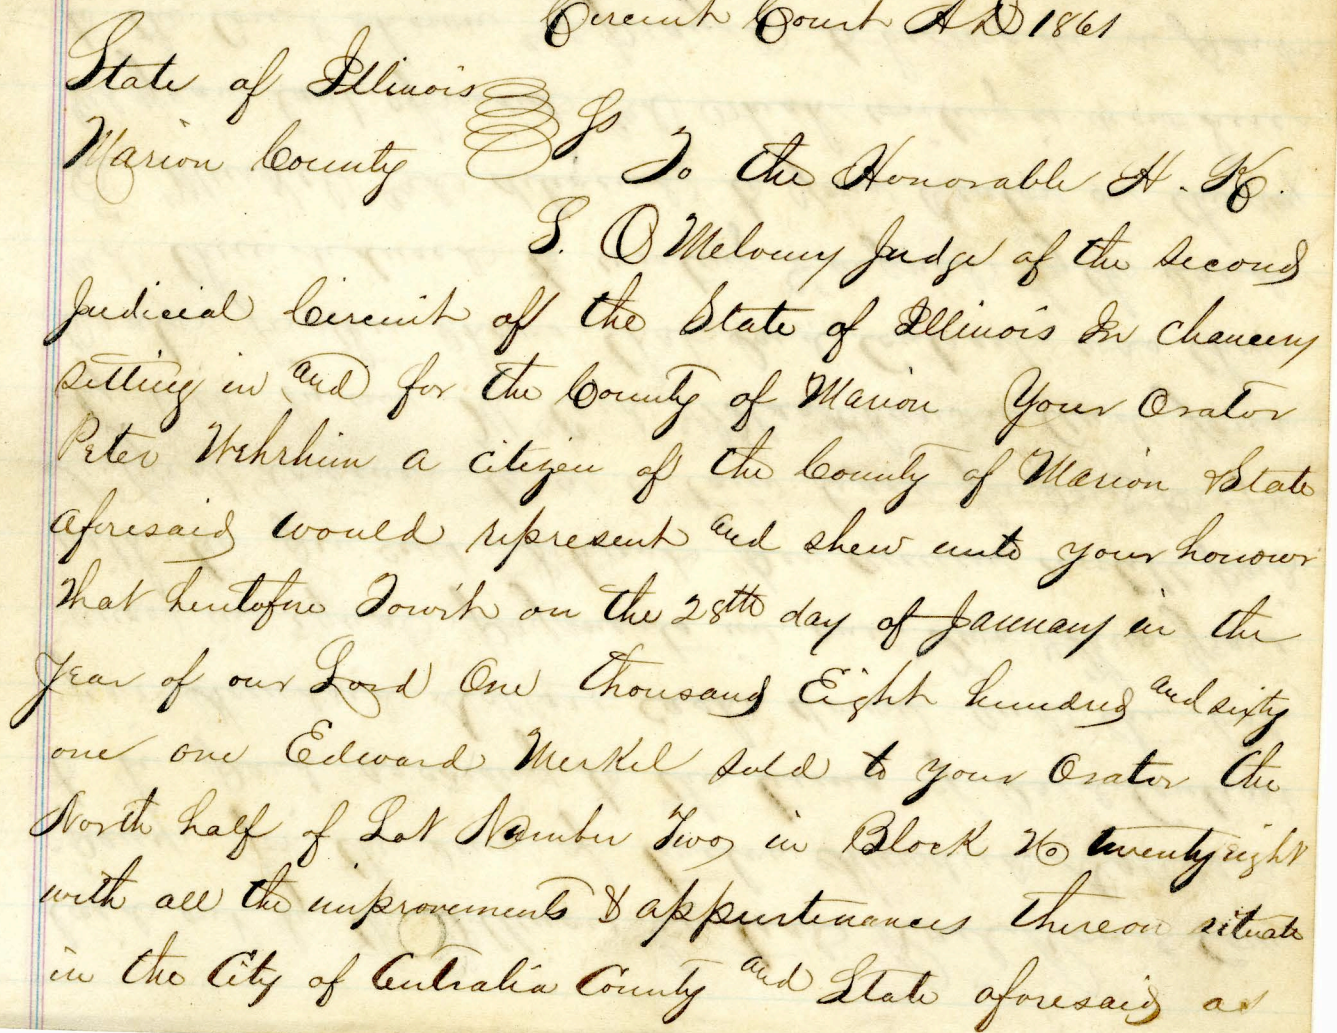 Circuit Court AD 1861
State of Illinois
Marion County Ss
To the Honorable H. K.
S. O Melveny Judge of the Second
Judicial Circuit off the State of Illinois In chancery
sitting in and for the County of Marion Your Orator
Peter Wehrheim a citizen of the County of Marion & State
aforesaid would represent and shew unto your honour
that heretofore Towit on the 28th day of January in the
Year of our Lord One thousand Eight hundred and sixty
one one Edward Merkel sold to your Orator the
North half of Lot Number Two in Block No twenty eight
with all the improvements & appurtenances thereon situate
in the City of Centralia County and State aforesaid as